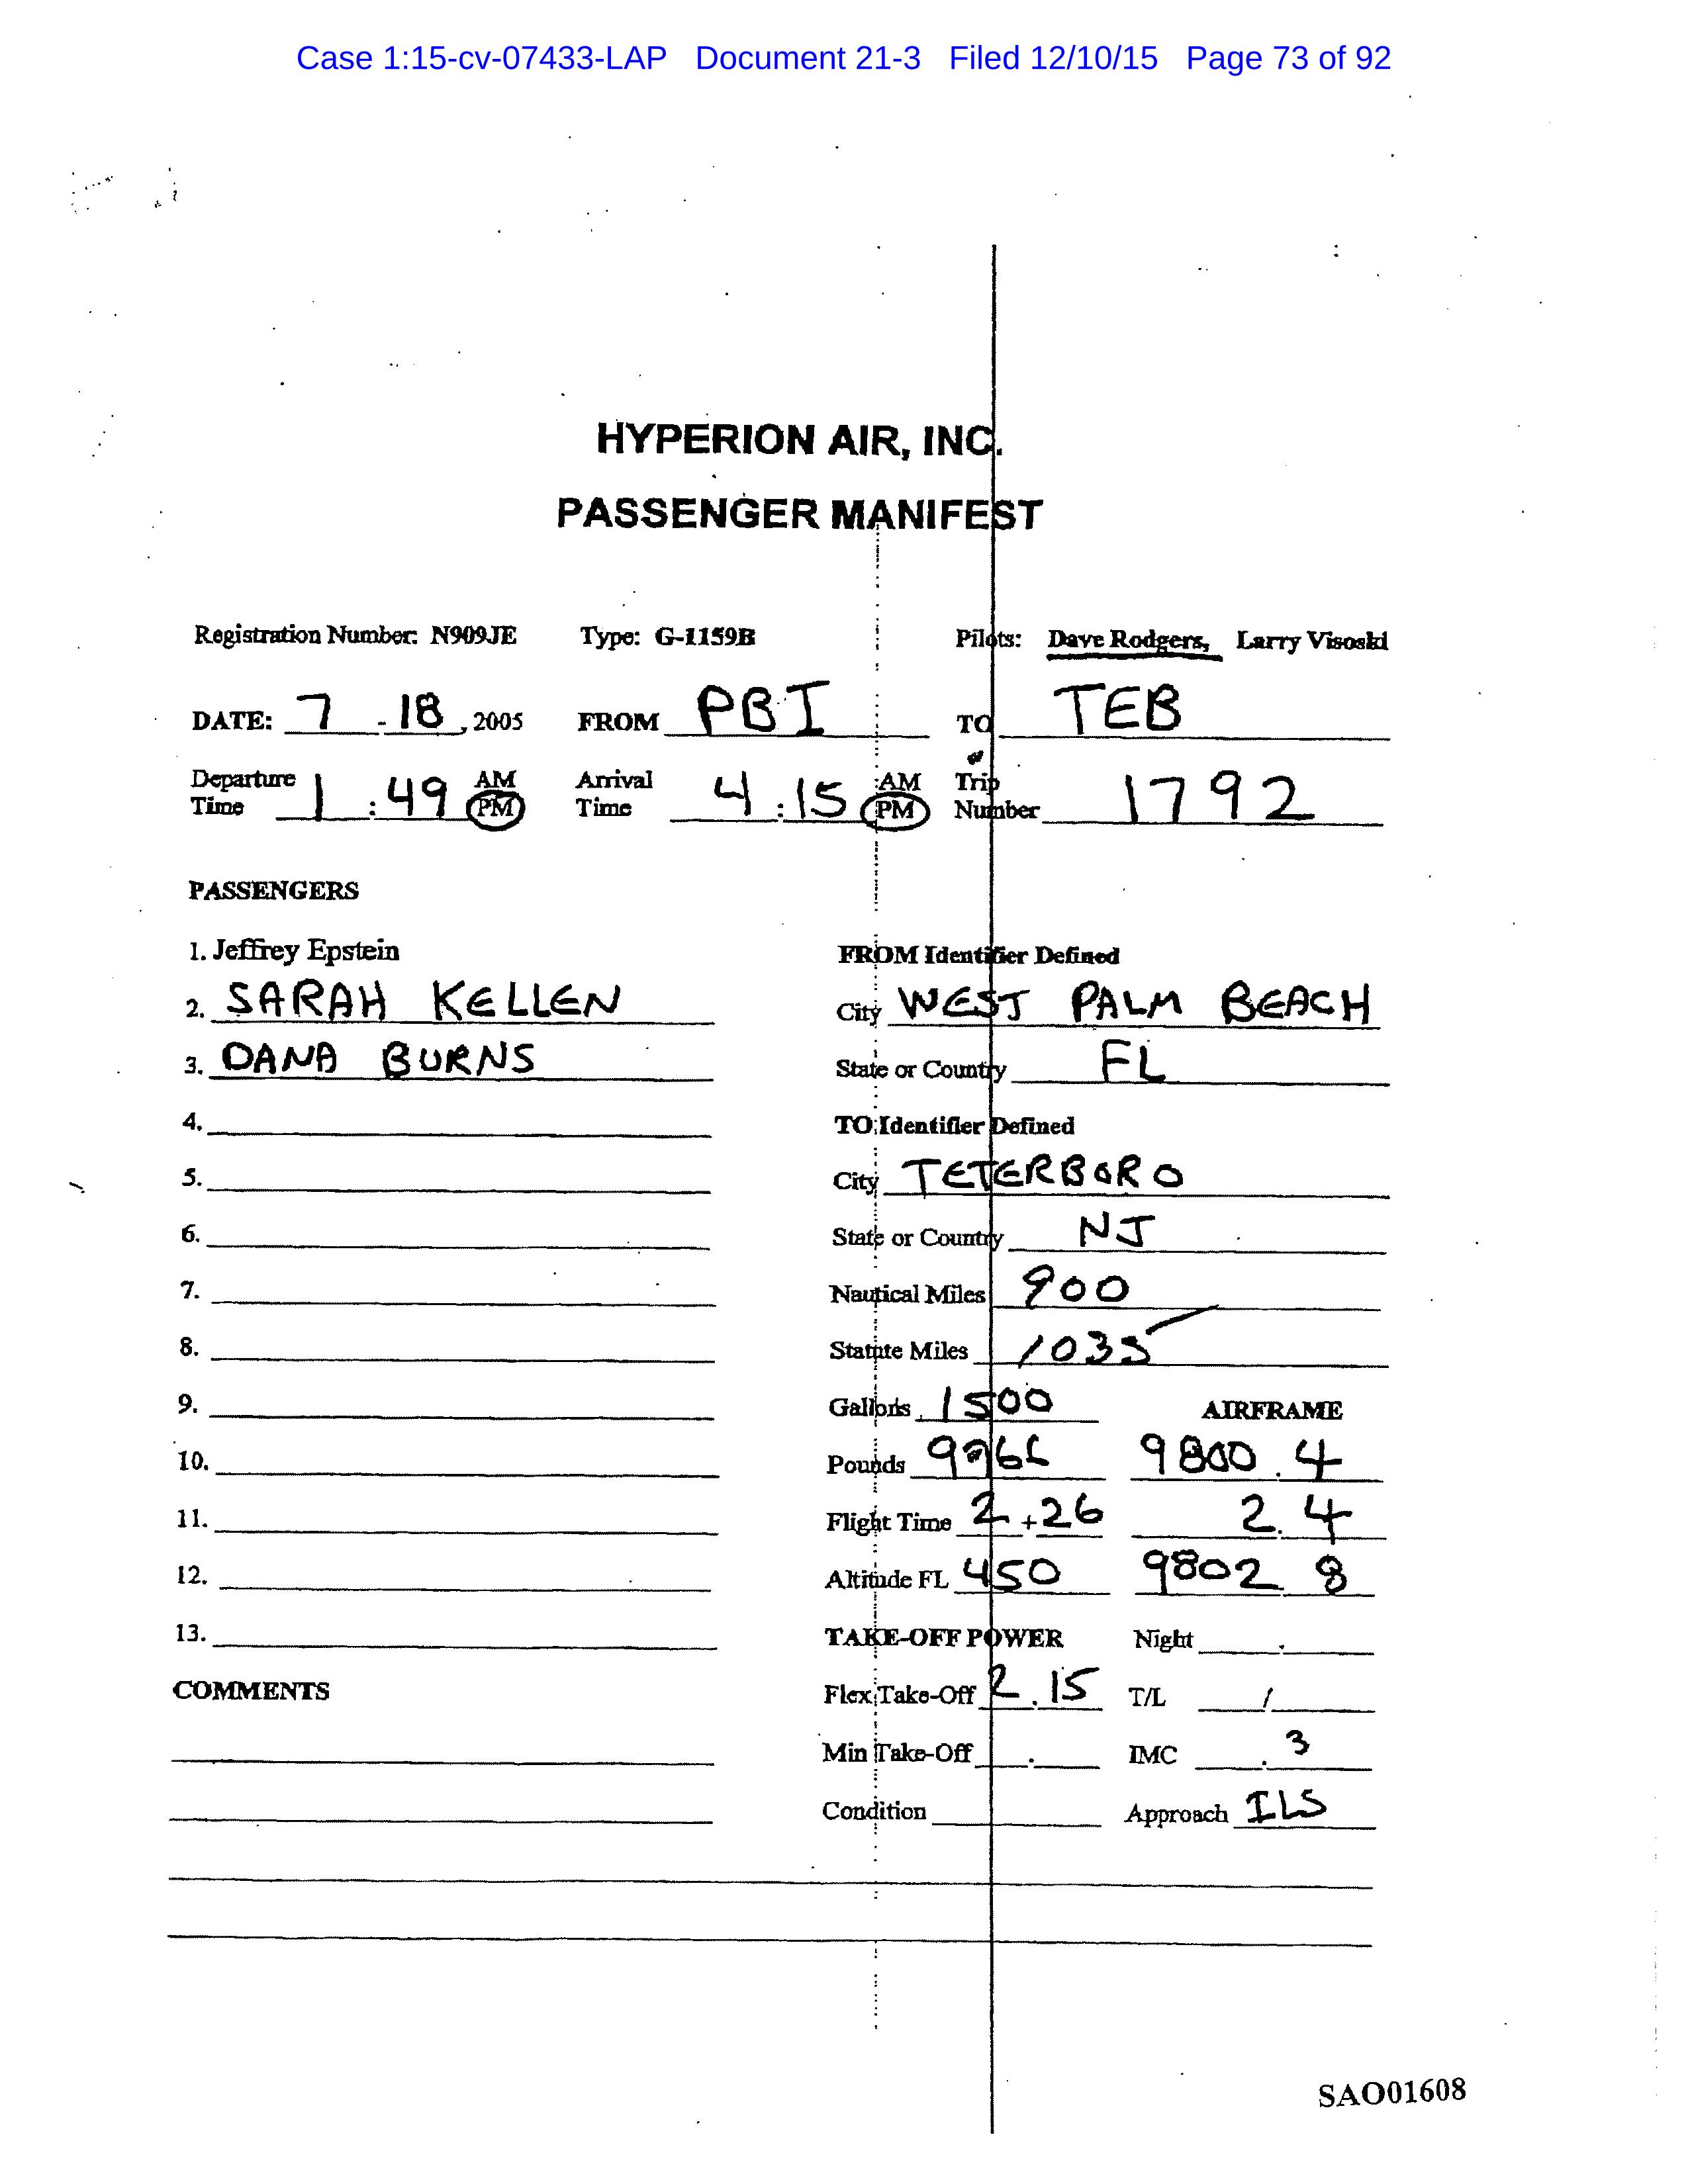 Case 1:15-cv-07433-LAP Document 21-3 Filed 12/10/15 Page 73 of 92
HYPERION AIR, INC.
PASSENGER MANIFEST
Registration Number: N909JE Type: G-1159B Pilots: Dave Rodgers, Larry Visoski
DATE: 7 - 18, 2005 FROM PBI TO TEB
Departure Time 1:49 AM PM Arrival Time 4:15 AM PM Trip Number 1792
PASSENGERS
1. Jeffrey Epstein
2. SARAH KELLEN
3. DANA BURNS
4.
5.
6.
7.
8.
9.
10.
11.
12.
13.
COMMENTS
FROM Identifier Defined
City WEST PALM BEACH
State or Country FL
TO Identifier Defined
City TETERBORO
State or Country NJ
Nautical Miles 900
Statute Miles 1035
Gallons 1500 AIRFRAME
Pounds 9800.4
Flight Time 2+26 2.4
Altitude FL 450 9802 8
TAKE-OFF POWER Night .
Flex Take-Off 2.15 T/L /
Min Take-Off . IMC .3
Condition Approach ILS
SAO01608